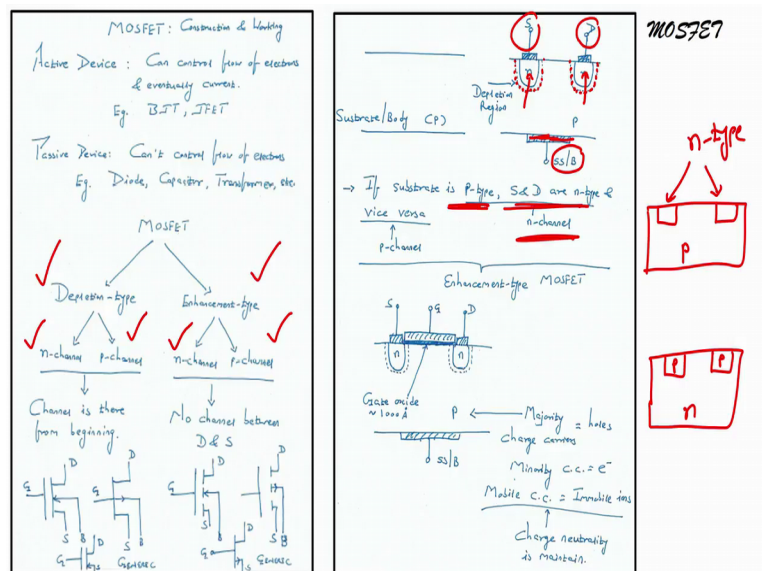 MOSFET: Construction & Working
Active Device: Can control flow of electrons
& eventually current.
Eg. BJT, JFET
Passive Device: Can't control flow of electrons
Eg. Diode, Capacitor, Transformer, etc.
MOSFET
Depletion-type
Enhancement-type
n-channel
p-channel
n-channel
p-channel
Channel is there
from beginning.
No channel between
D & S
D
G
S
B
D
G
S
B
D
G
S
B
D
G
S
B
G
D
S
GENERIC
G
D
S
GENERIC
S
D
n
n
Depletion
Region
Susbrate/Body (P)
P
SS/B
→ If substrate is P-type, S&D are n-type &
vice versa
n-channel
p-channel
Enhancement-type MOSFET
S
G
D
n
n
Gate oxide
~1000Å
P
Majority
charge carriers
= holes
SS/B
Minority c.c. = e⁻
Mobile c.c. = Immobile ions
Charge neutrality
is maintain.
MOSFET
n-type
P
P
P
n